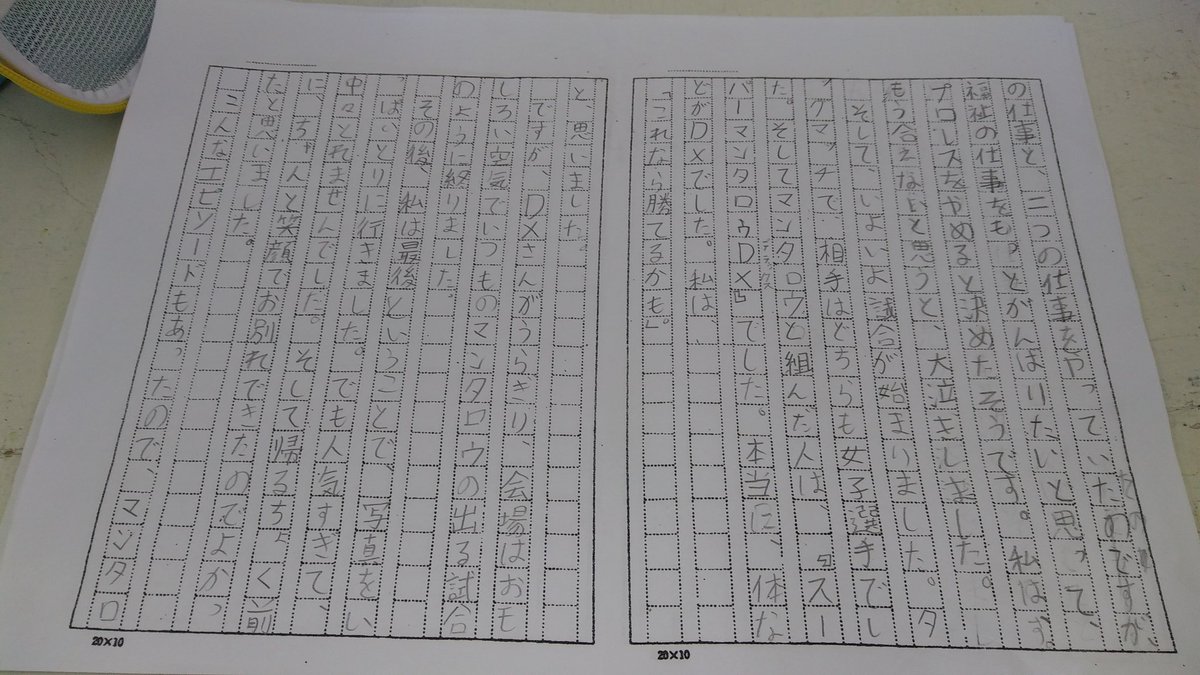 の仕事と、二つの仕事をやっていたのですが、
福祉の仕事をもっとがんばりたいと思って、
プロレスをやめると決めたそうです。私はず
もう会えないと思うと、大泣きしました。
そして、いよいよ試合が始まりました。タ
ッグマッチで、相手はどちらも女子選手でし
た。そしてマンタロウと組んだ人は、「スー
パーマンタロウDX」でした。本当に、体な
デラックス
どがDXでした。私は、
「これなら勝てるかも」。
と、思いました。
ですが、DXさんがうらぎり、会場はおも
しろい空気でいつものマンタロウの出る試合
のように終りました。
その後、私は最後ということで、写真をい
っぱいとりに行きました。でも人気すぎて、
中々とれませんでした。そして帰るちょく前
に、ちゃんと笑顔でお別れできたのでよかっ
たと思いました。
こんなエピソードもあったので、マンタロ
20×10
20×10